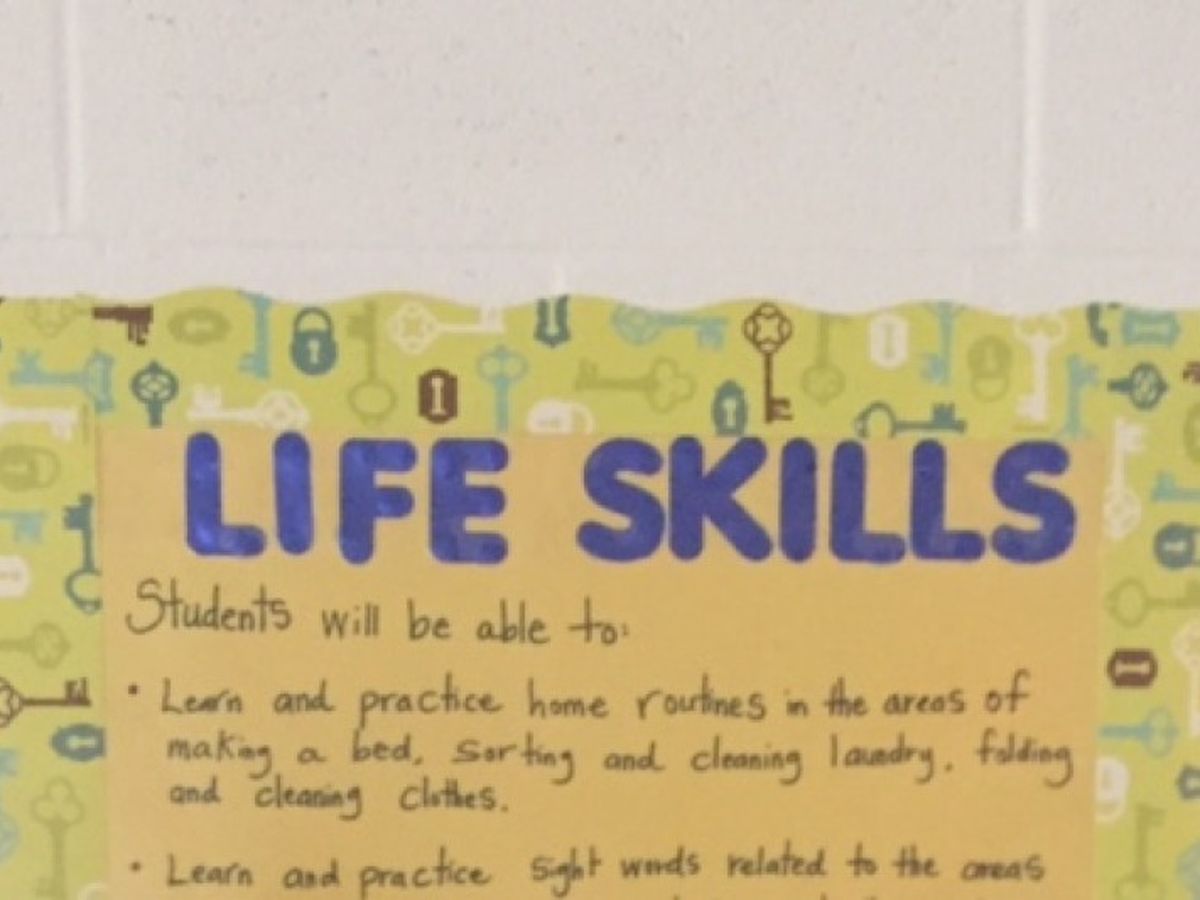 LIFE SKILLS
Students will be able to:
• Learn and practice home routines in the areas of
making a bed, sorting and cleaning laundry, folding
and cleaning clothes.
• Learn and practice sight words related to the areas